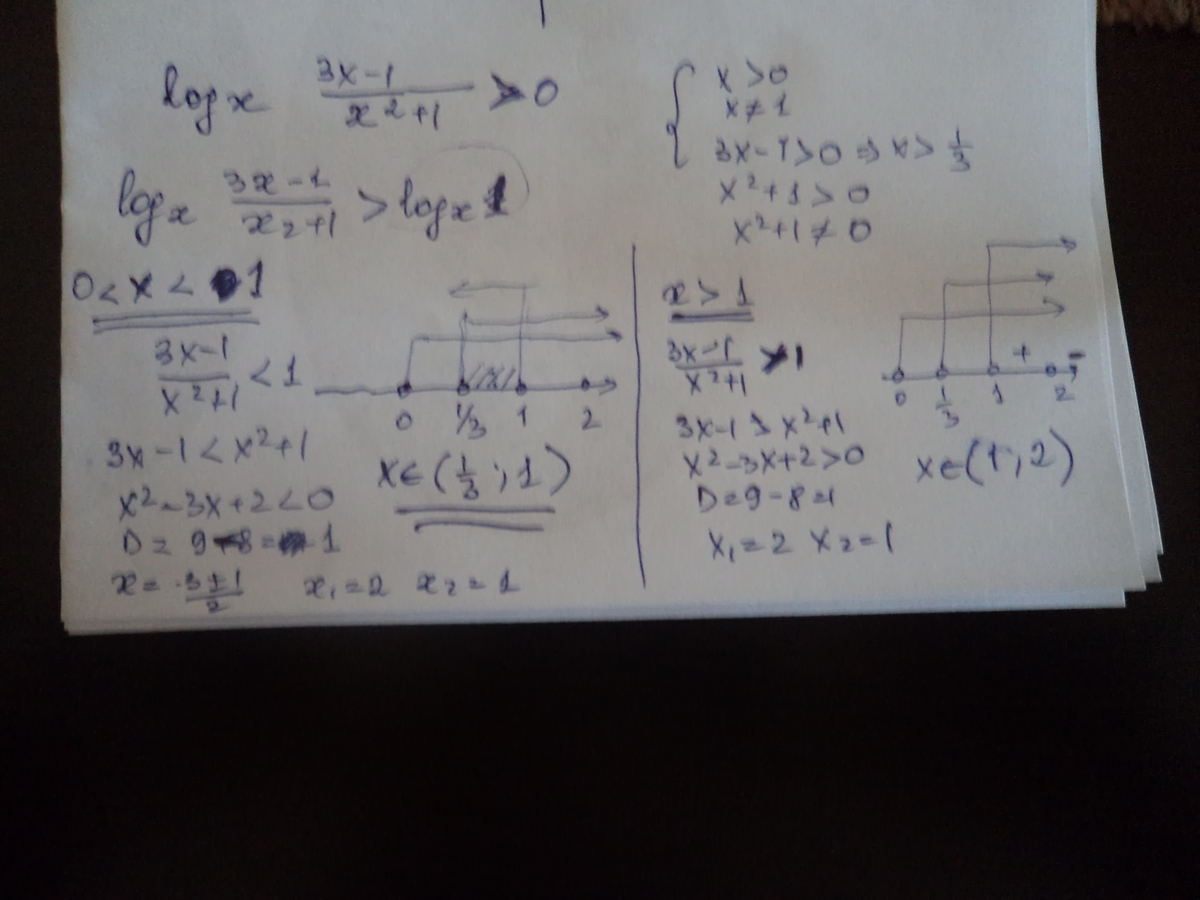 log x (3x-1)/(x²+1) > 0
{ x > 0
x ≠ 1
3x-1 > 0 ⇒ x > 1/3
x²+1 > 0
x²+1 ≠ 0
log x (3x-1)/(x₂+1) > log x 1
0 < x < 1
(3x-1)/(x²+1) < 1
3x-1 < x²+1
x²-3x+2 < 0
D = 9-8 = 1
x = (3±1)/2 x₁=2 x₂=1
0 1/3 1 2
x∈(1/3; 1)
x > 1
(3x-1)/(x²+1) > 1
3x-1 > x²+1
x²-3x+2 > 0
D = 9-8=1
x₁=2 x₂=1
+ -
0 1/3 1 2
x∈(1; 2)